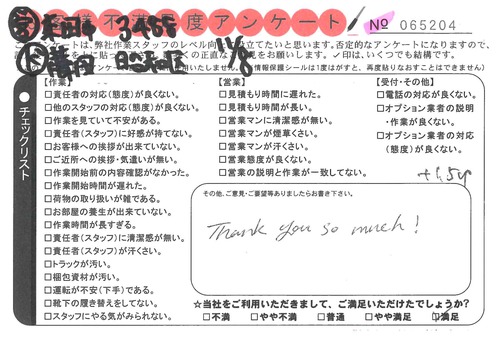 お客様不満足度アンケート
№ 065204
3455
11/8
【作業】
□責任者の対応(態度)が良くない。
□他のスタッフの対応(態度)が良くない。
□作業を見ていて不安がある。
□責任者(スタッフ)に好感が持てない。
□お客様への挨拶が出来ていない。
□ご近所への挨拶・気遣いが無い。
□作業開始前の内容確認がなかった。
□作業開始時間が遅れた。
□荷物の取り扱いが雑である。
□お部屋の養生が出来ていない。
□作業時間が長すぎる。
□責任者(スタッフ)に清潔感が無い。
□責任者(スタッフ)が汗くさい。
□トラックが汚い。
□梱包資材が汚い。
□運転が不安(下手)である。
□靴下の履き替えをしてない。
□スタッフにやる気がみられない。
【営業】
□見積もり時間に遅れた。
□見積もり時間が長い。
□営業マンに清潔感が無い。
□営業マンが煙草くさい。
□営業マンが汗くさい。
□営業態度が良くない。
□営業の説明と作業が一致してない。
【受付・その他】
□電話の対応が良くない。
□オプション業者の説明
・作業が良くない。
□オプション業者の対応
(態度)が良くない。
チェックリスト
その他、ご意見・ご要望等ありましたらお書き下さい。
Thank you so much!
☆当社をご利用いただきまして、ご満足いただけたでしょうか?
□不満 □やや不満 □普通 □やや満足 □満足